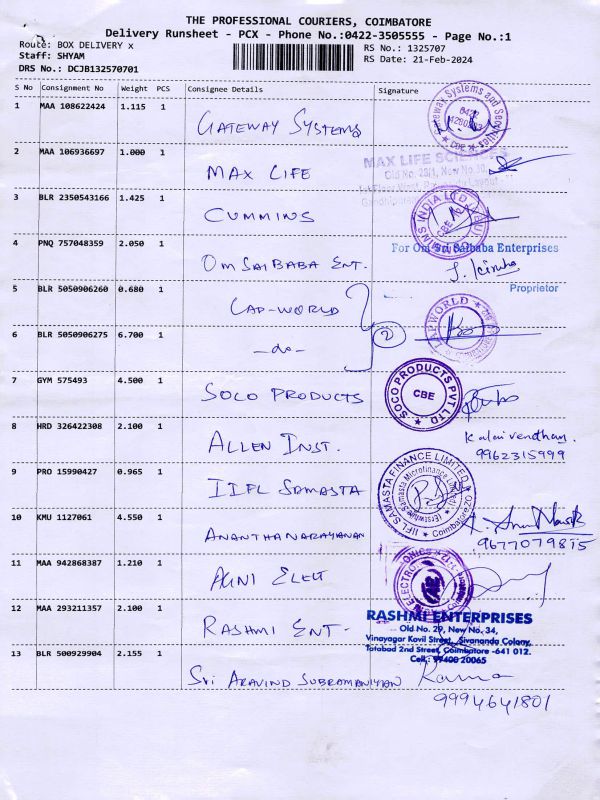 THE PROFESSIONAL COURIERS, COIMBATORE
Delivery Runsheet - PCX - Phone No.:0422-3505555 - Page No.:1
Route: BOX DELIVERY x
Staff: SHYAM
DRS No.: DCJB132570701
RS No.: 1325707
RS Date: 21-Feb-2024
S No Consignment No Weight PCS Consignee Details Signature
1 MAA 108622424 1.115 1 GATEWAY SYSTEMS
Gateway Systems and
CBE
2 MAA 106936697 1.000 1 MAX LIFE
MAX LIFE
3 BLR 2350543166 1.425 1 CUMMINS
INDIA LTD
CBE
4 PNQ 757048359 2.050 1 OM SAI BABA ENT.
For Om Sri Saibaba Enterprises
Proprietor
5 BLR 5050906260 0.680 1 LAP-WORLD
LAPWORLD
6 BLR 5050906275 6.700 1 -do- 2
7 GYM 575493 4.500 1 SOCO PRODUCTS
SOCO PRODUCTS PVT LTD
CBE
8 HRD 326422308 2.100 1 ALLEN INST.
Kalaivendhan.
9962315999
9 PRO 15990427 0.965 1 IIFL SAMASTA
IIFL SAMASTA FINANCE LIMITED
Samasta Microfinance
Coimbatore ZO
10 KMU 1127061 4.550 1 ANANTHANARAYANAN
9677079815
11 MAA 942868387 1.210 1 AGNI ELECT
12 MAA 293211357 2.100 1 RASHMI ENT.
RASHMI ENTERPRISES
Old No. 29, New No. 34,
Vinayagar Kovil Street, Sivananda Colony,
Tatabad 2nd Street, Coimbatore -641 012.
Cell: 99400 20065
13 BLR 500929904 2.155 1 Sri ARAVIND SUBRAMANIYAN
Rama
9994641801